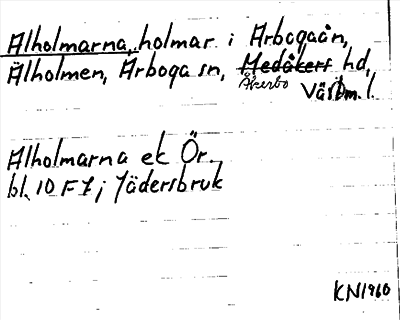 Alholmarna, holmar i Arbogaån,
Älholmen, Arboga sn, Medåkers hd,
Åkerbo
Västm. l.
Alholmarna ek Ör.
bl. 10 F 7 j Jädersbruk
KN1960